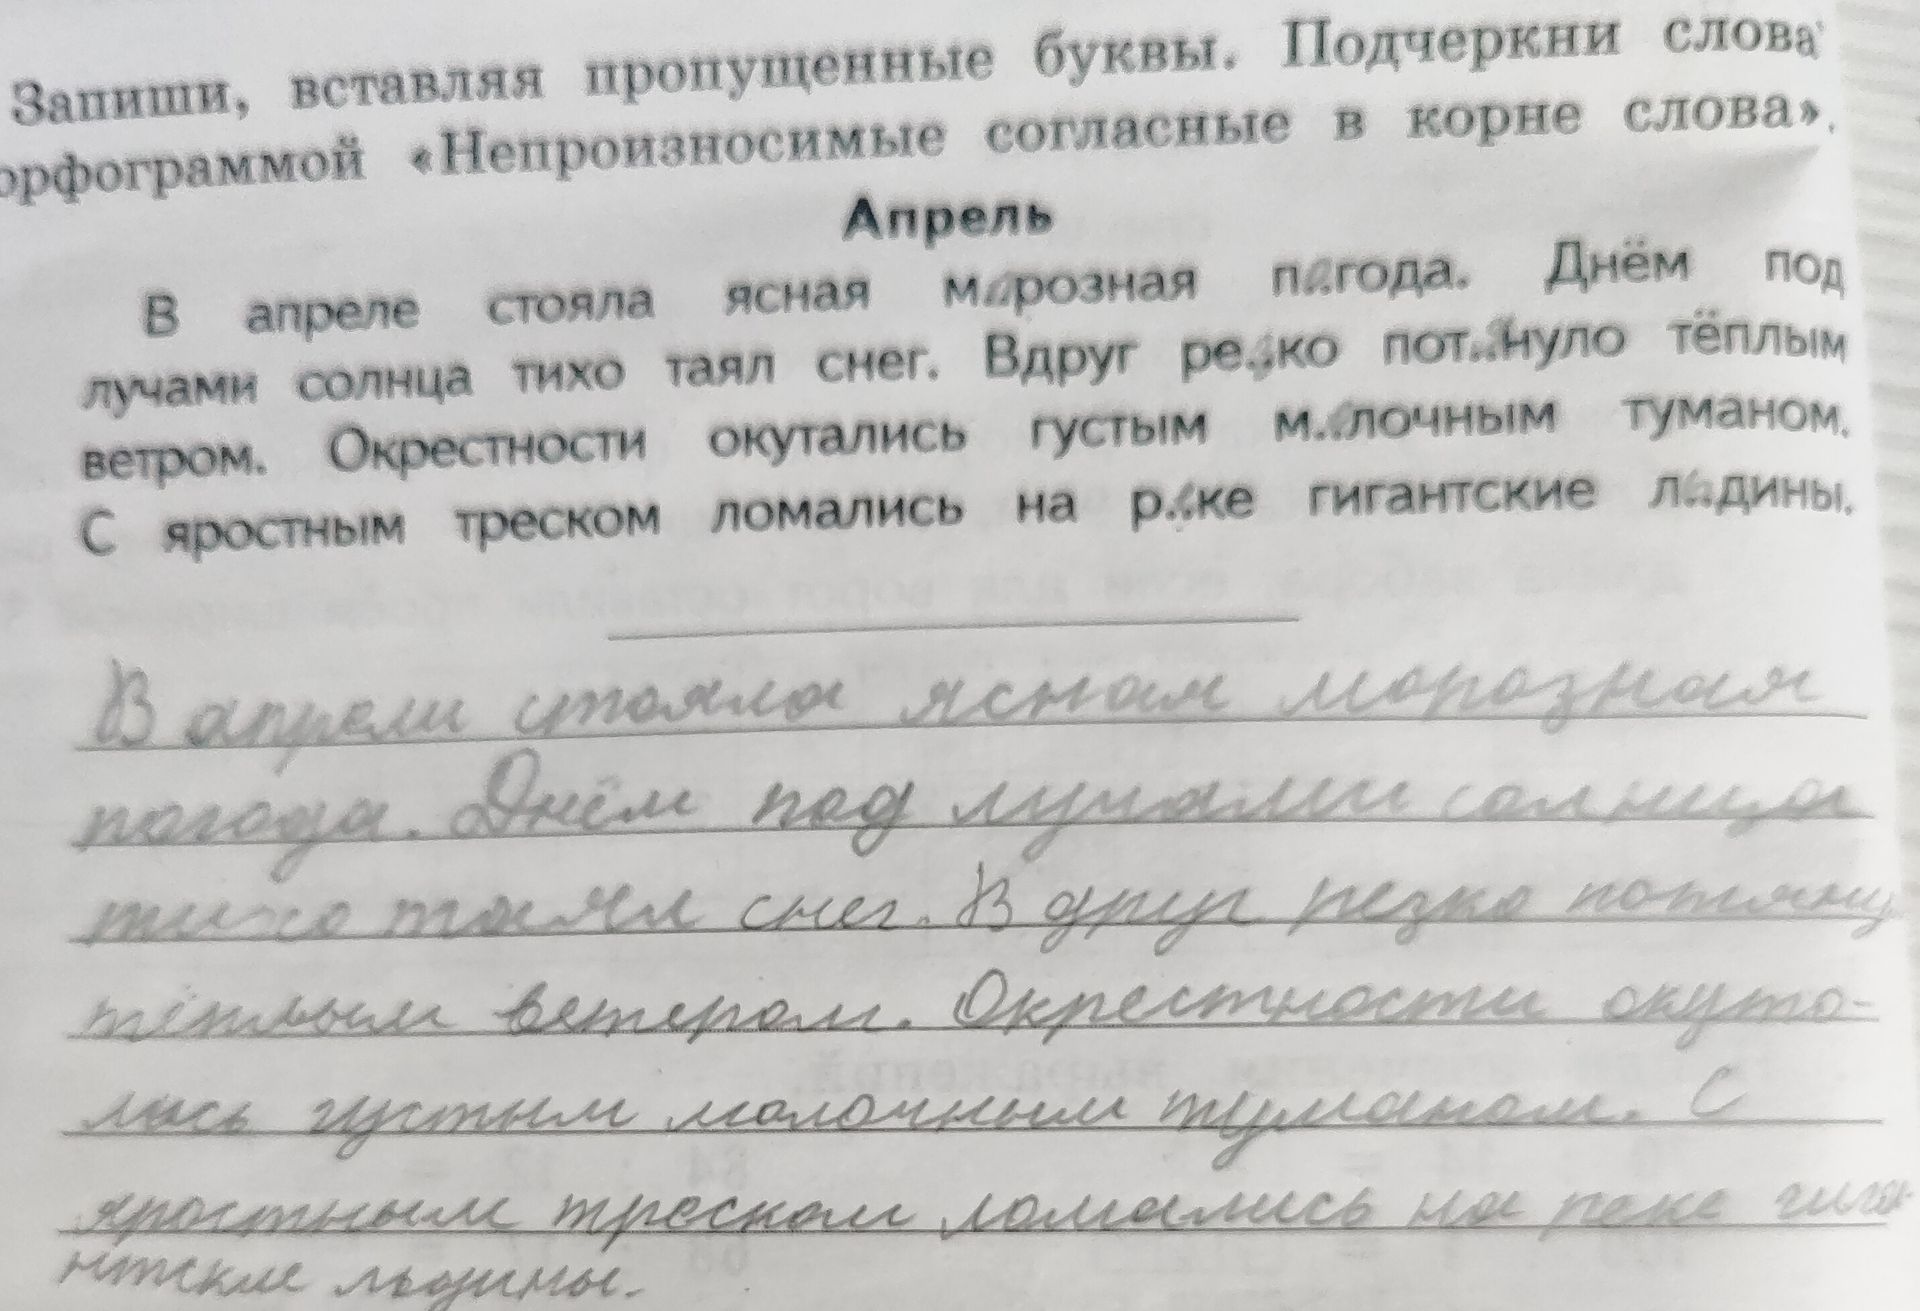 Запиши, вставляя пропущенные буквы. Подчеркни слова
орфограммой «Непроизносимые согласные в корне слова».
Апрель
В апреле стояла ясная морозная погода. Днём под
лучами солнца тихо таял снег. Вдруг резко пот..януло тёплым
ветром. Окрестности окутались густым м..олочным туманом.
С яростным треском ломались на р.еке гигантские льдины.
В апрели стояла ясная морозная
погода. Днём под лучами солнца
тихо таял снег. Вдруг резко потяну
тёплым ветером. Окрестности окута-
лись густым молочным туманом. С
яростным треском ломались на реке гиган
нтские льдины.